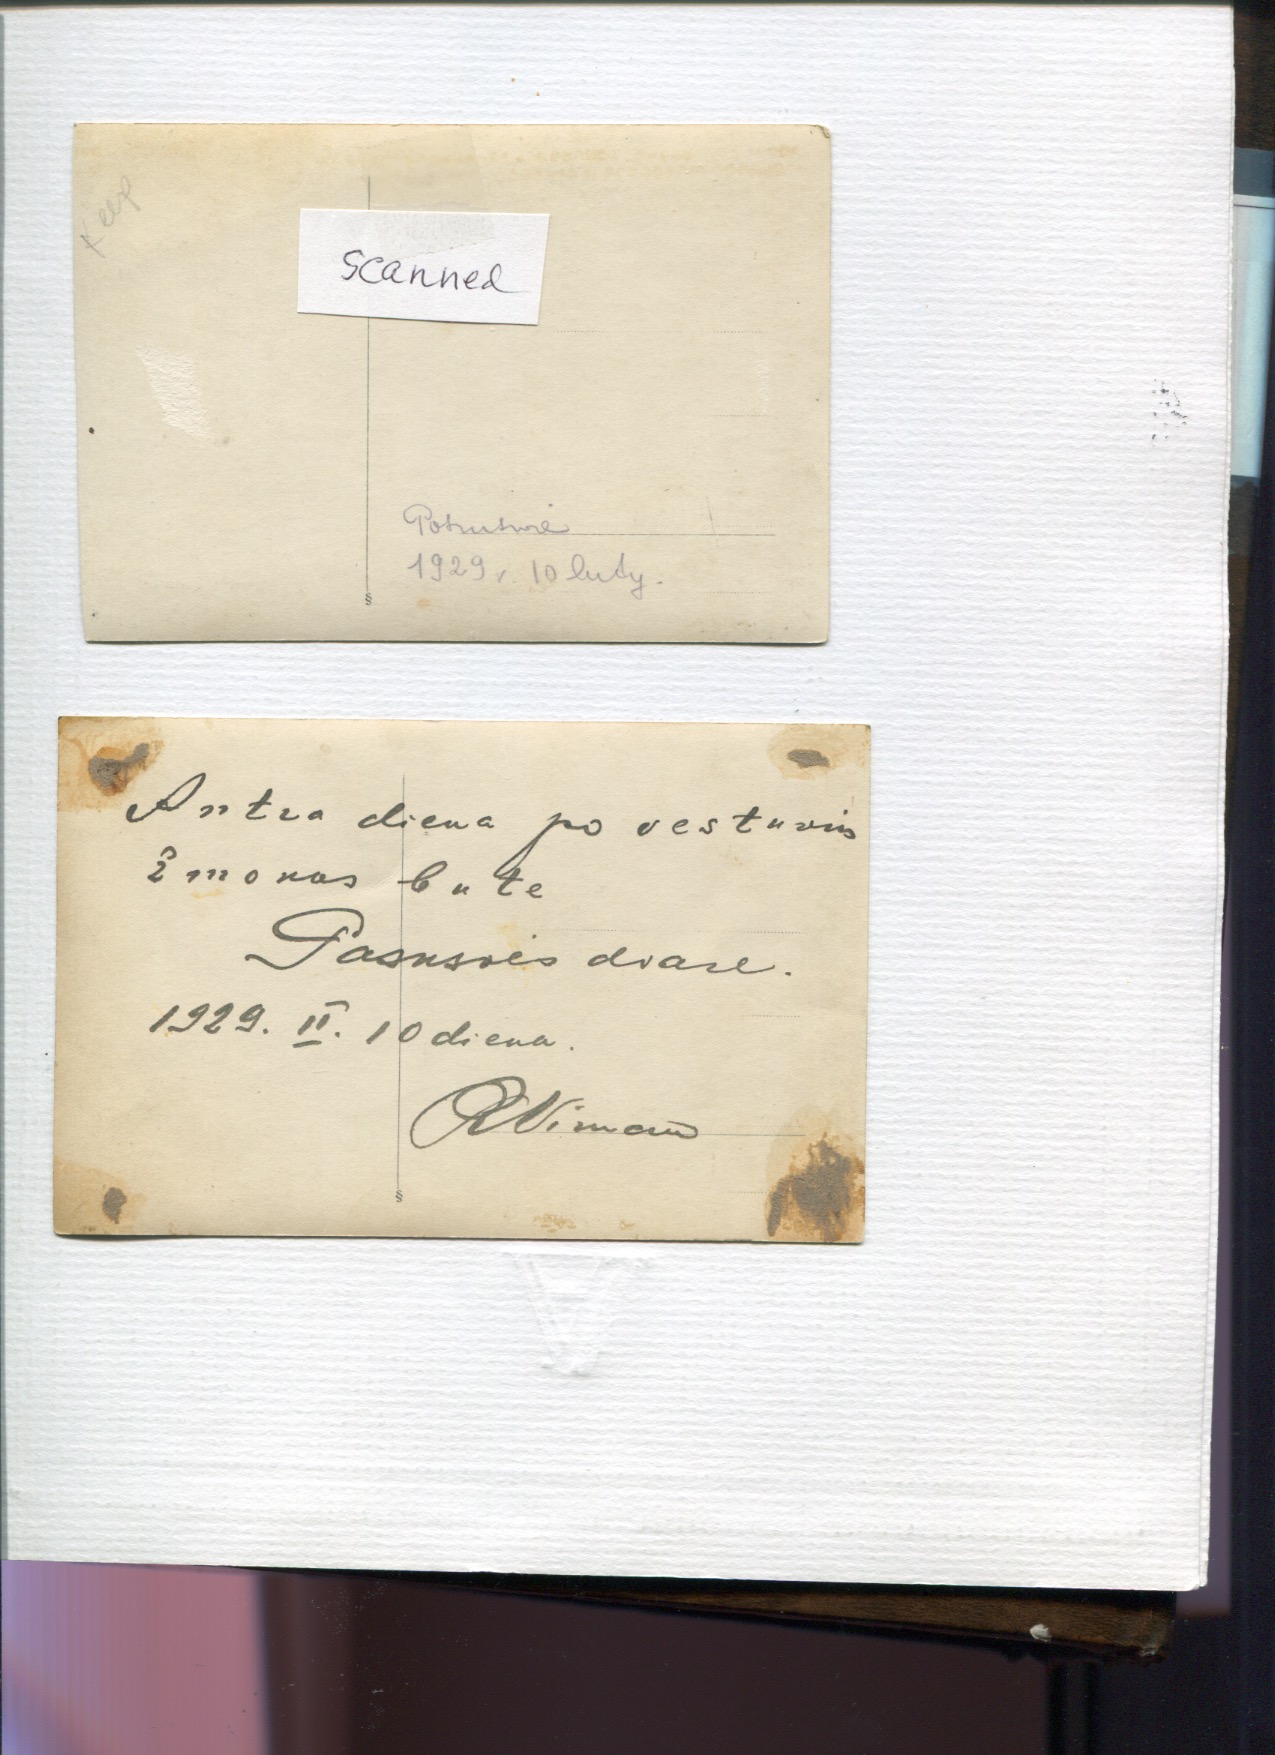 Keep
scanned
1929 r. 10 luty.
Antra diena po vestuvių
žmonos bute
Pasusvės dvare.
1929. II. 10 diena.